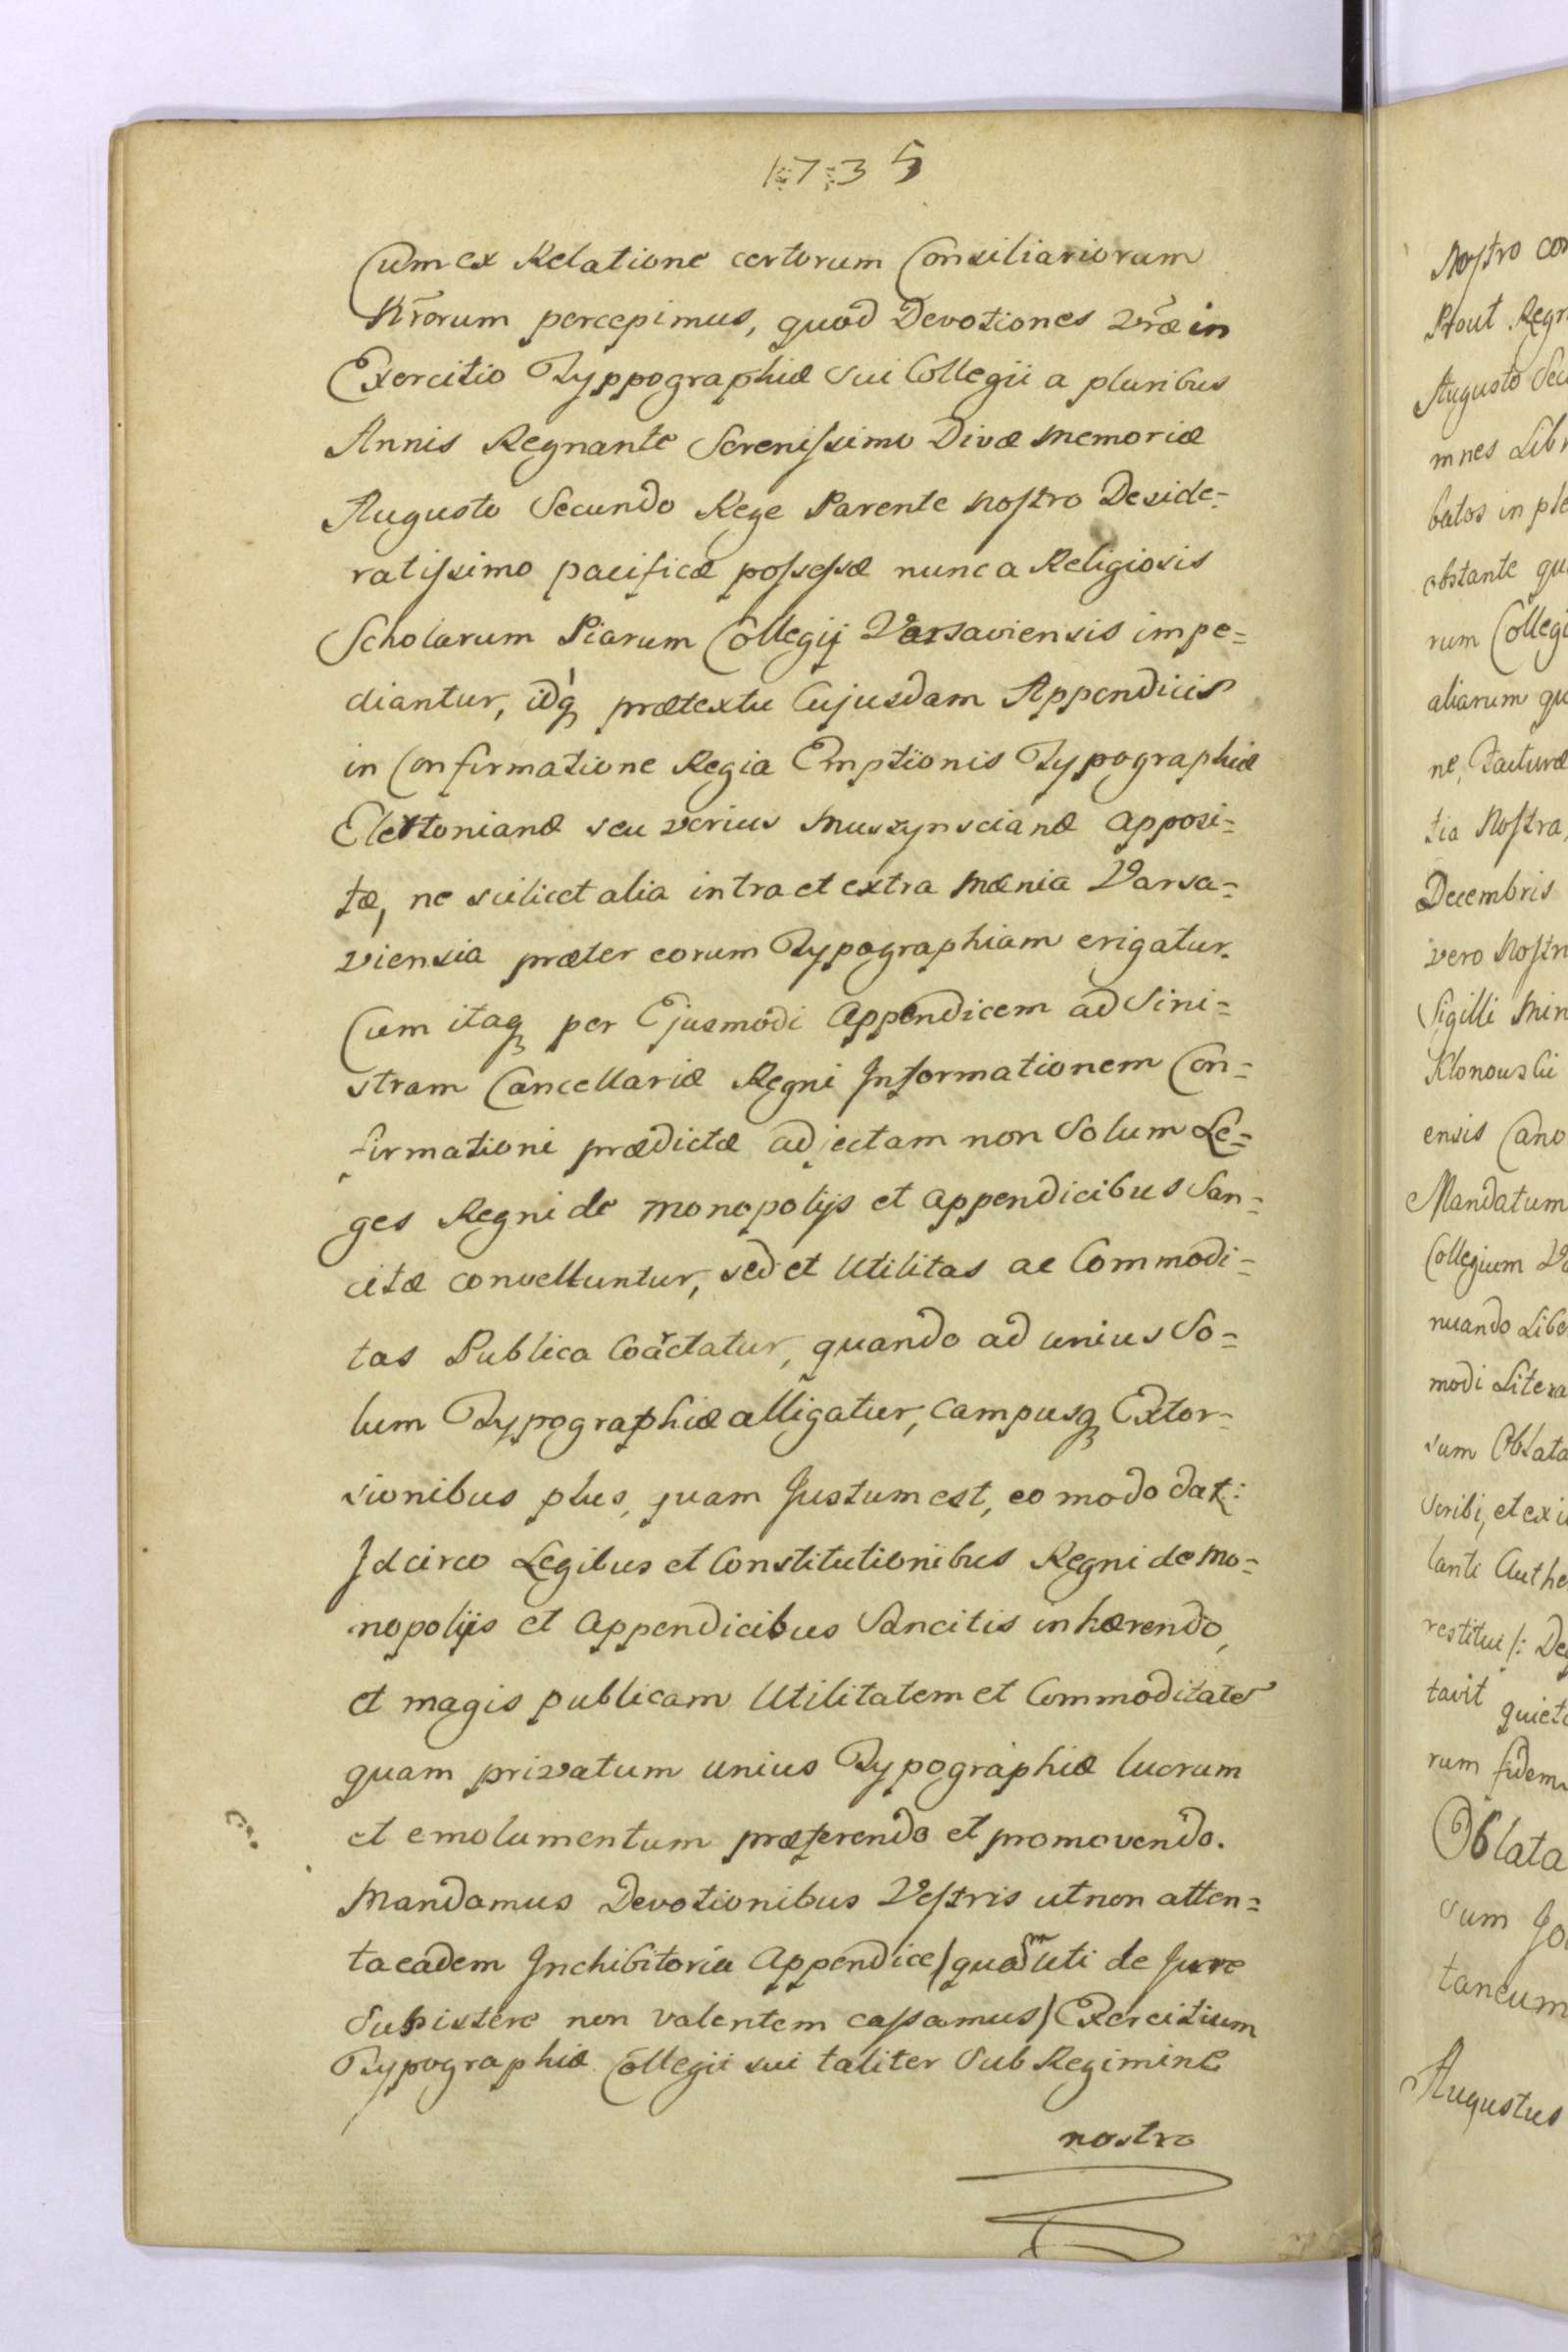 1735
Cum ex Relatione certorum Consiliariorum
Nr̃orum percepimus, quod Devotiones Vr̃æ in
Exercitio Typpographiæ Sui Collegii a pluribus
Annis Regnante Serenissimo Divæ Memoriæ
Augusto Secundo Rege Parente Nostro Deside=
ratissimo pacificæ possessæ nunc a Religiosis
Scholarum Piarum Collegij Varsaviensis impe=
diantur, idq́ prætextu Cujusdam Appendicis
in Confirmatione Regia Emptionis Typographiæ
Elertonianæ seu verius Muszynscianæ apposi=
tæ, ne scilicet alia intra et extra Mænia Varsa=
viensia præter eorum Typographiam erigatur.
Cum itaq per Ejusmodi Appendicem ad Sini=
stram Cancellariæ Regni Informationem Con=
firmationi prædictæ adjectam non Solum Le=
ges Regni de Monopolijs et appendicibus San=
citæ convelluntur, sed et Utilitas ac Commodi=
tas Publica Coarctatur, quando ad unius So=
lum Typographiæ alligatur, Campusq Extor=
sionibus plus, quam Justum est, eo modo dat:
Idcirco Legibus et Constitutionibus Regni de Mo=
nopolijs et Appendicibus Sancitis inhærendo,
et magis publicam Utilitatem et Commoditatē
quam privatum unius Typographiæ lucrum
et emolumentum præferendo et promovendo.
Mandamus Devotionibus Vestris ut non atten=
ta eadem Inchibitoria Appendice/quadm uti de Jure
Subsistere non valentem cassamus/Exercitium
Typographiæ Collegii sui taliter Sub Regimine
nostro
Nostro
Prout
Augusto
mnes
batos in
obstante
rum
aliarum
ne, Facturæ
tia Nostra,
Decembris
vero
Sigilli
Klonowski
ensis
Mandatum
Collegium
nuando
modi
sum Oblata
scribi, et ex
lanti
restitui/:
tavit
rum fidem
Oblata
sum
taneum
Augustus